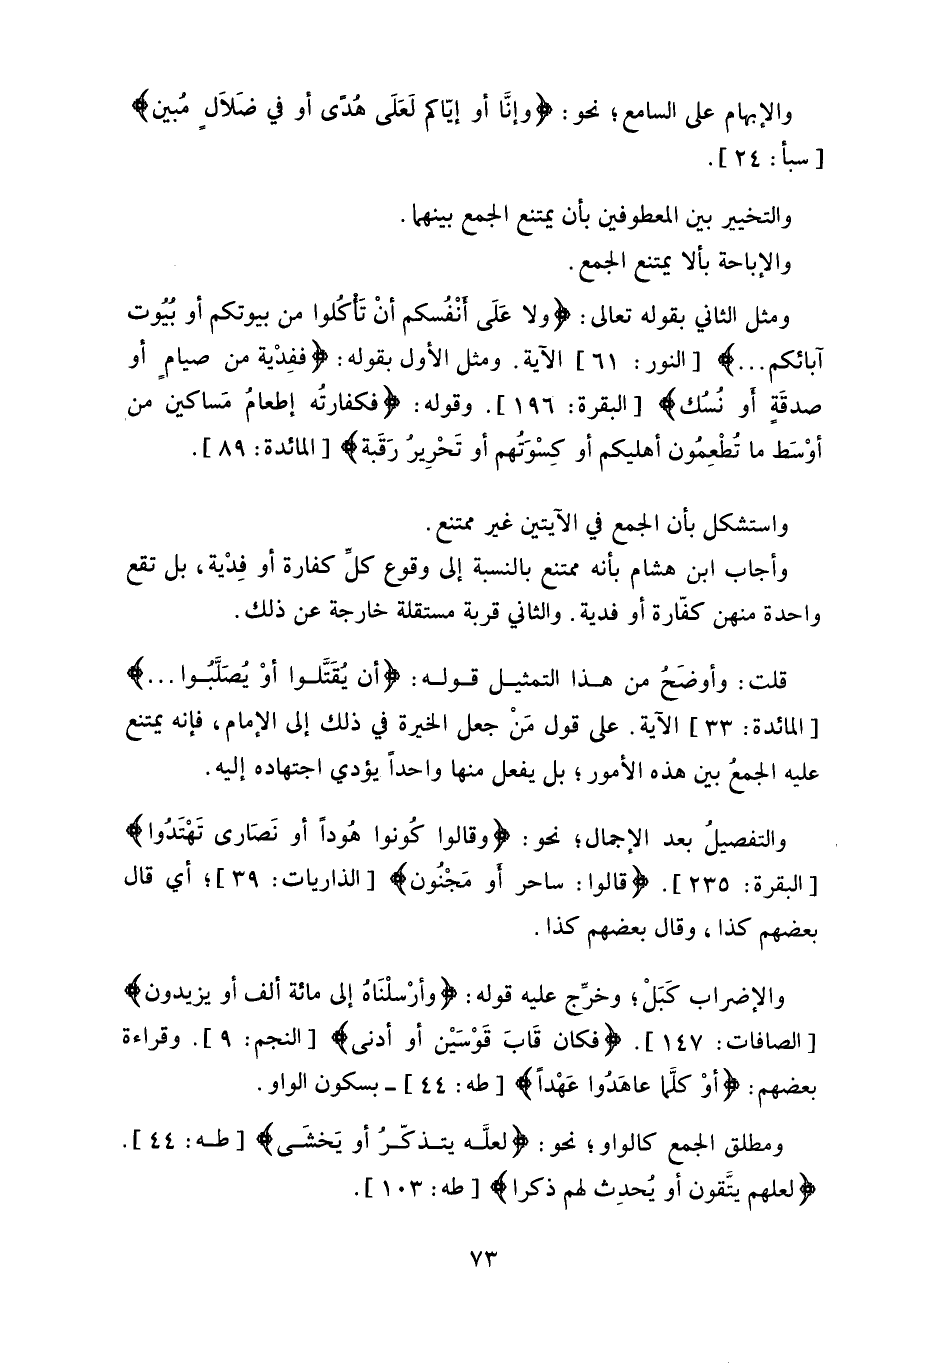 والإبهام على السامع؛ نحو: ﴿وإنَّا أو إيّاكم لَعَلَى هُدًى أو في ضَلاَلٍ مُبين﴾
[سبأ: ٢٤].
والتخيير بين المعطوفين بأن يمتنع الجمع بينهما.
والإباحة بألا يمتنع الجمع.
ومثل الثاني بقوله تعالى: ﴿ولا عَلَى أَنْفُسكم أنْ تَأْكُلوا من بيوتكم أو بُيُوت
آبائكم...﴾ [النور: ٦١] الآية. ومثل الأول بقوله: ﴿ففِدْية من صيامٍ أو
صدقَةٍ أَو نُسُك﴾ [البقرة: ١٩٦]. وقوله: ﴿فكفارتُه إطعامُ مَساكين من
أوْسَط ما تُطْعِمُون أهليكم أو كِسْوَتُهم أو تَحْرِيرُ رَقَبة﴾ [المائدة: ٨٩].
واستشكل بأن الجمع في الآيتين غير ممتنع.
وأجاب ابن هشام بأنه ممتنع بالنسبة إلى وقوع كلِّ كفارة أو فِدْية، بل تقع
واحدة منهن كفّارة أو فدية. والثاني قربة مستقلة خارجة عن ذلك.
قلت: وأوضَحُ من هـذا التمثيـل قـولـه: ﴿أن يُقَتَّلـوا أوْ يُصَلَّبُـوا...﴾
[المائدة: ٣٣] الآية. على قول مَنْ جعل الخيرة في ذلك إلى الإمام، فإنه يمتنع
عليه الجمعُ بين هذه الأمور؛ بل يفعل منها واحداً يؤدي اجتهاده إليه.
والتفصيلُ بعد الإجمال؛ نحو: ﴿وقالوا كُونوا هُوداً أو نَصَارى تَهْتَدُوا﴾
[البقرة: ٢٣٥]. ﴿قالوا: ساحر أَو مَجْنُون﴾ [الذاريات: ٣٩]؛ أي قال
بعضهم كذا، وقال بعضهم كذا.
والإضراب كَبَلْ؛ وخرِّج عليه قوله: ﴿وأرْسلْنَاهُ إلى مائة ألف أو يزيدون﴾
[الصافات: ١٤٧]. ﴿فكان قَابَ قَوْسَيْن أو أدنى﴾ [النجم: ٩]. وقراءة
بعضهم: ﴿أوْ كلَّما عاهَدُوا عَهْداً﴾ [طه: ٤٤] ـ بسكون الواو.
ومطلق الجمع كالواو؛ نحو: ﴿لعلَّـه يتـذكّـرُ أو يَخشَـى﴾ [طـه: ٤٤].
﴿لعلهم يتَّقون أو يُحدِث لهم ذكرا﴾ [طه: ١٠٣].
٧٣